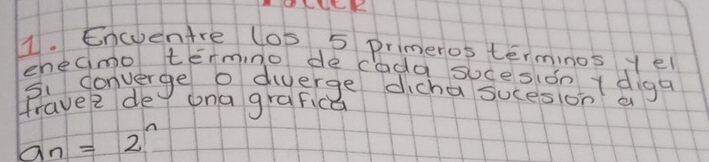 1. Encuentre los 5 primeros términos y el
enecimo término de cada sucesión y diga
si converge o diverge dicha sucesion a
travez de una grafica
an = 2^n